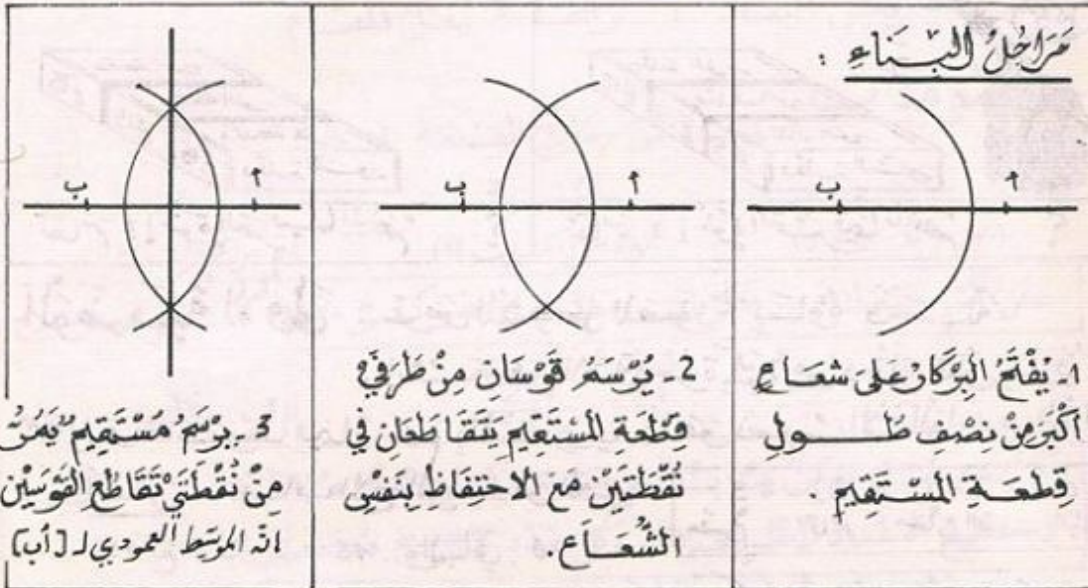 مَرَاحِلُ الْبِنَاءِ :
أ
ب
1- يُفْتَحُ البِرْكَارُ عَلَى شُعَاعٍ
أَكْبَرَ مِنْ نِصْفِ طُولِ
قِطْعَةِ المُسْتَقِيمِ .
أ
ب
2- يُرْسَمُ قَوْسَانِ مِنْ طَرَفَيْ
قِطْعَةِ المُسْتَقِيمِ يَتَقَاطَعَانِ فِي
نُقْطَتَيْنِ مَعَ الاحْتِفَاظِ بِنَفْسِ
الشُّعَاعِ .
أ
ب
3- يُرْسَمُ مُسْتَقِيمٌ يَمُرُّ
مِنْ نُقْطَتَيْ تَقَاطُعِ القَوْسَيْنِ
انه الموسّط العمودي لـ [أب]